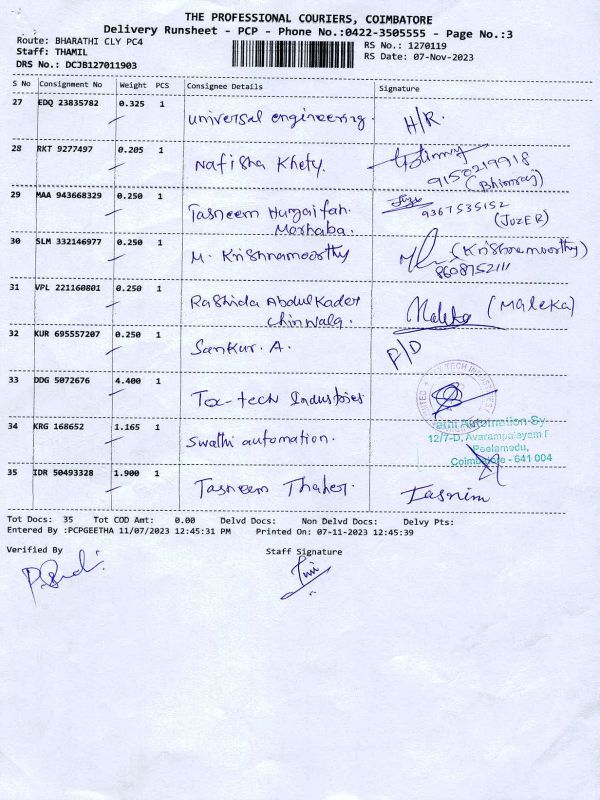 THE PROFESSIONAL COURIERS, COIMBATORE
Delivery Runsheet - PCP - Phone No.:0422-3505555 - Page No.:3
Route: BHARATHI CLY PC4
RS No.: 1270119
Staff: THAMIL
RS Date: 07-Nov-2023
DRS No.: DCJB127011903
S No Consignment No Weight PCS Consignee Details Signature
27 EDQ 23835782 0.325 1 Universal engineering. H/R.
28 RKT 9277497 0.205 1 Nafisha Khety. 9150219918
(Bhimraj)
29 MAA 943668329 0.250 1 Tasneem Huzaifah. 9367535152
Merhaba. (JUZER)
30 SLM 332146977 0.250 1 M. Krishnamoorthy (Krishnamoorthy)
8608752111
31 VPL 221160801 0.250 1 Rashida Abdulkader Maleka (Maleka)
Chinwala.
32 KUR 695557207 0.250 1 Sankur. A. P/D
33 DDG 5072676 4.400 1 Tex-tech Industries
34 KRG 168652 1.165 1 Swathi automation.
athi Automation Sy
12/7-D, Avarampalayam
Peelamedu,
Coimbatore - 641 004
35 IDR 50493328 1.900 1 Tasneem Thaher. Tasnim
Tot Docs: 35 Tot COD Amt: 0.00 Delvd Docs: Non Delvd Docs: Delvy Pts:
Entered By :PCPGEETHA 11/07/2023 12:45:31 PM Printed On: 07-11-2023 12:45:39
Verified By Staff Signature